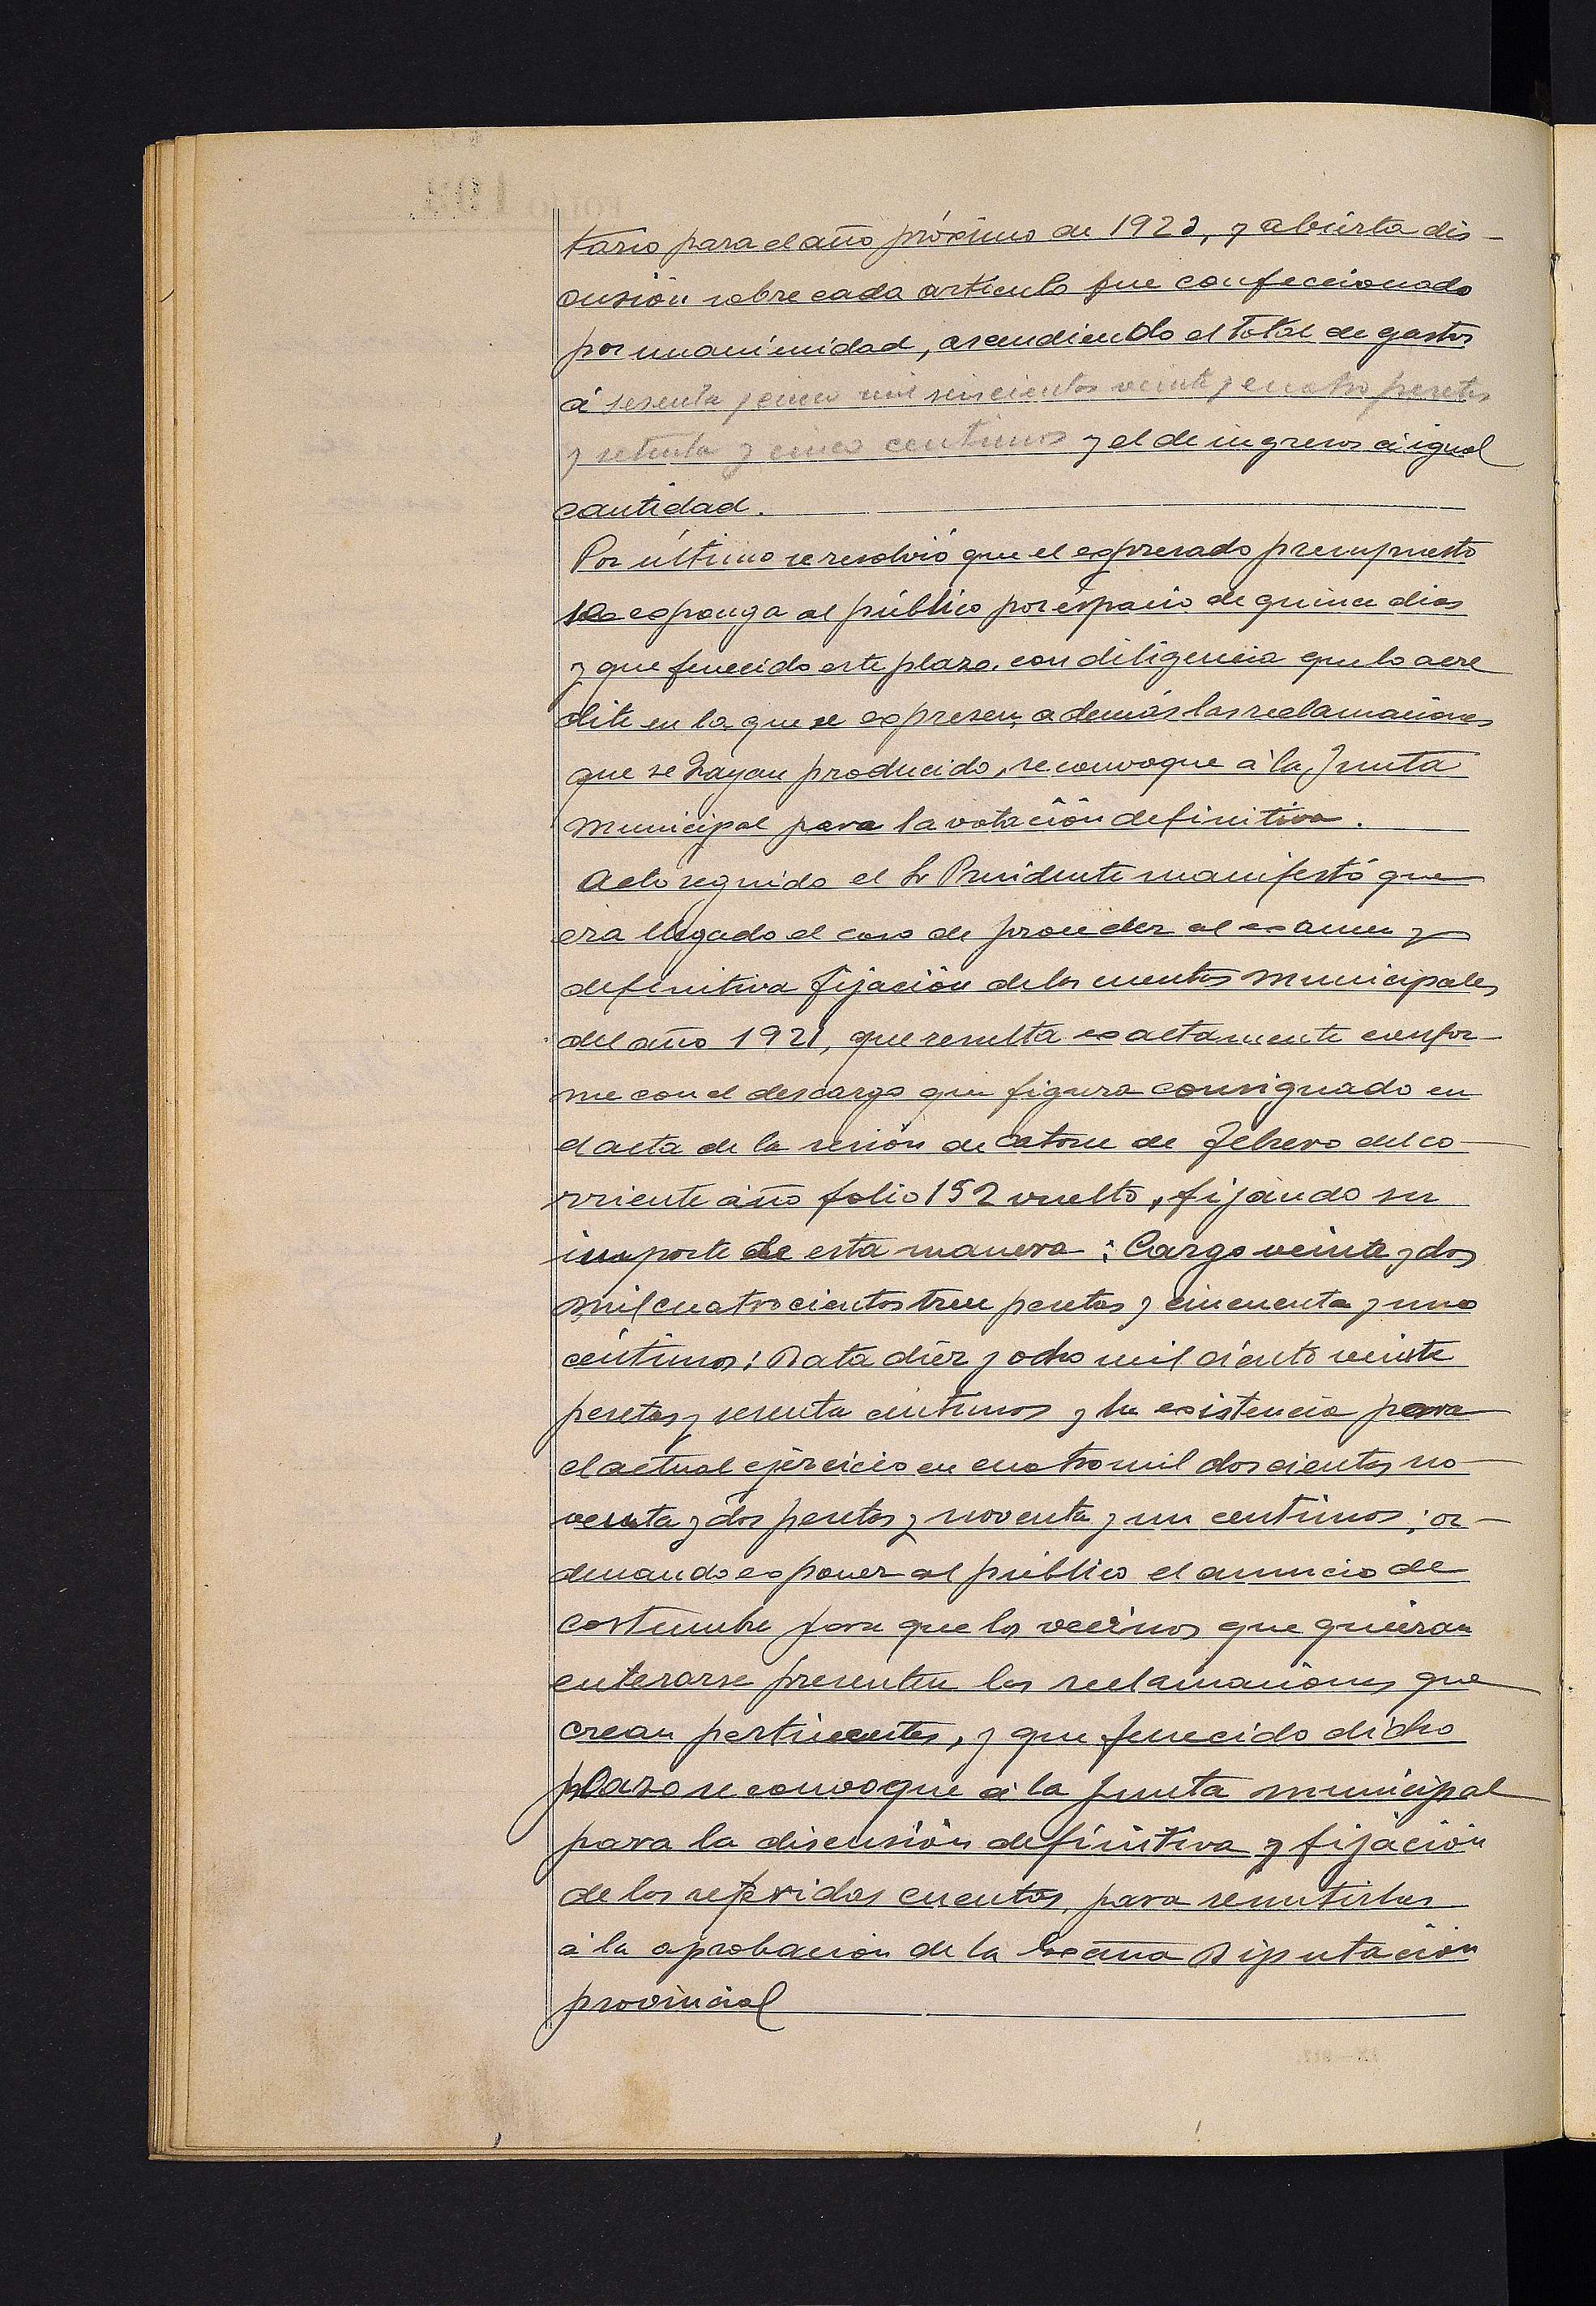 tario para el año próximo de 1923, y abierta dis-
cusión sobre cada artículo fue confeccionado
por unanimidad, ascendiendo el total de gastos
á sesenta y cinco mil seiscientos veinte y cuatro pesetas
y setenta y cinco centimos y el de ingresos á igual
cantidad.
Por último se resolvió que el expresado presupuesto
se exponga al público por espacio de quince dias
y que fenecido este plazo, con diligencia que lo acre
dite en la que se expresen, además las reclamaciones
que se hayan producido, se convoque á la Junta
municipal para la votación definitiva.
Acto seguido el Sr Presidente manifestó que
era llegado el caso de proceder al examen y
definitiva fijación de las cuentas municipales
del año 1921, que resulta exactamente confor-
me con el descargo que figura consignado en
el acta de la sesión de catorce de Febrero del co-
rriente año folio 152 vuelto, fijando su
importe de esta manera: Cargo veinte y dos
mil cuatrocientos trece pesetas y cincuenta y uno
céntimos: Data diez y ocho mil ciento veinte
pesetas y sesenta centimos y la existencia para
el actual ejercicio en cuatro mil doscientas no-
venta y dos pesetas y noventa y un centimos; or-
denando exponer al público el anuncio de
costumbre para que los vecinos que quieran
enterarse presenten las reclamaciones que
crean pertinentes, y que fenecido dicho
plazo se convoque á la Junta municipal
para la discusión definitiva y fijación
de las referidas cuentas, para remitirlas
á la aprobacion de la Excma Diputación
provincial